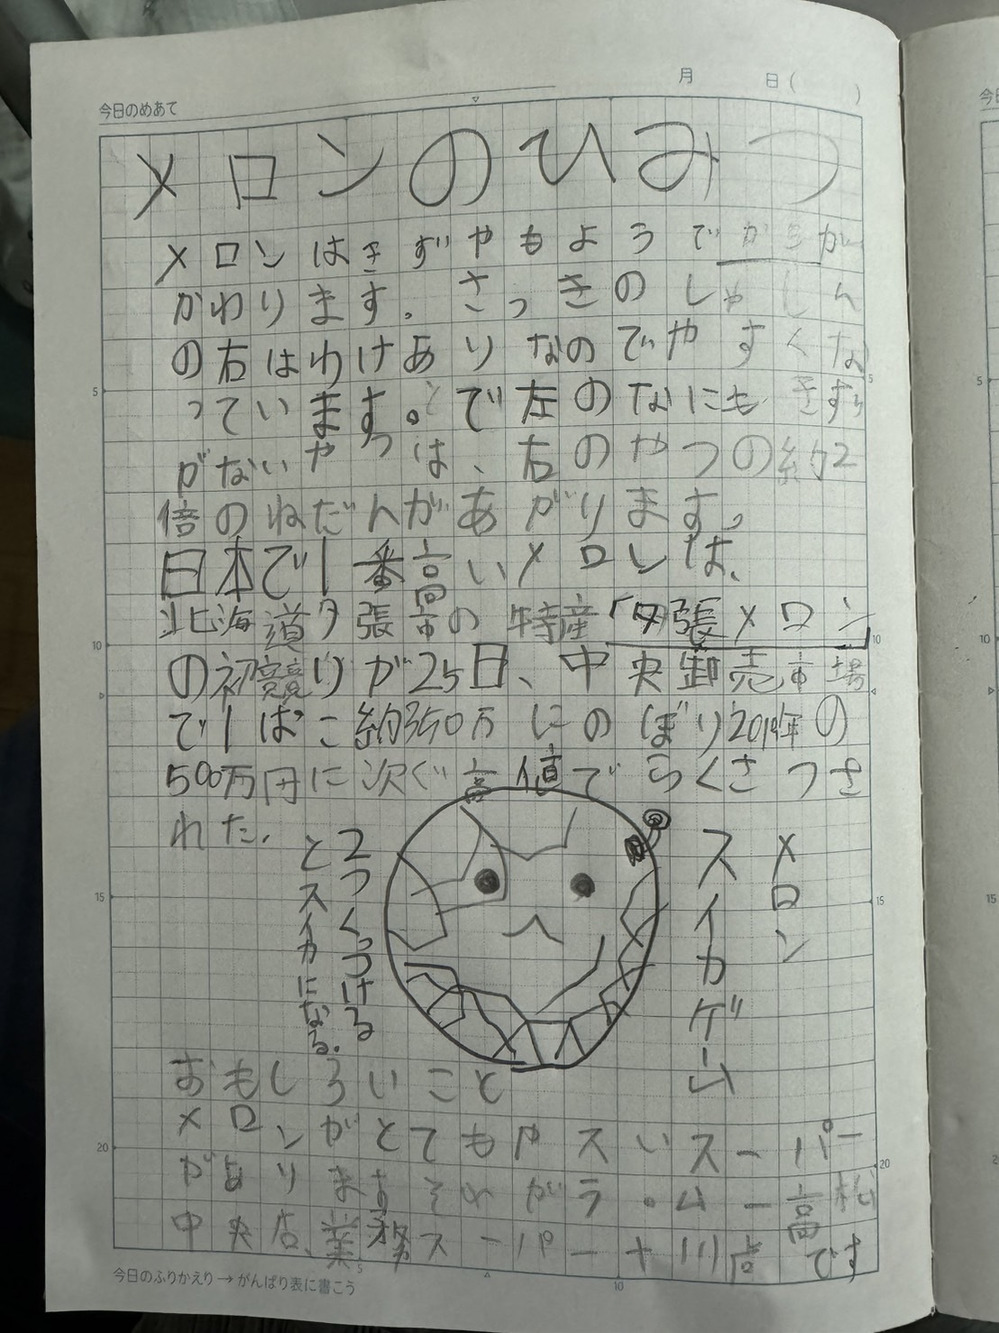 月 日( )
今日のめあて
メロンのひみつ
メロンはきずやもようでかちが
かわります。さっきのしゃしん
の右はわけありなのでやすくな
っています。で左のなにもきず
がないやつは、右のやつの約2
倍のねだんがあがります。
日本で1番高いメロンは、
北海道夕張市の特産「夕張メロン」
の初競りが25日、中央卸売市場
で1ぱこ約350万にのぼり2019年の
500万円に次ぐ高値でらくさつさ
れた.
メロン
スイカゲーム
2つくっつける
とスイカになる.
おもしろいこと
メロンがとてもやスいスーパー
がありますそれがラ・ムー高松
中央店、業務スーパー十川店です
今日のふりかえり→がんばり表に書こう
5
10
15
20
5
10
15
20
5
10
5
10
15